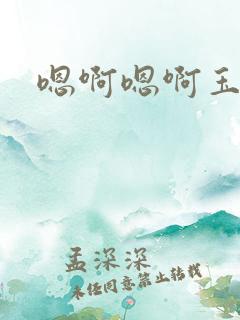 嗯啊嗯啊玉
孟深深
未经同意禁止转载